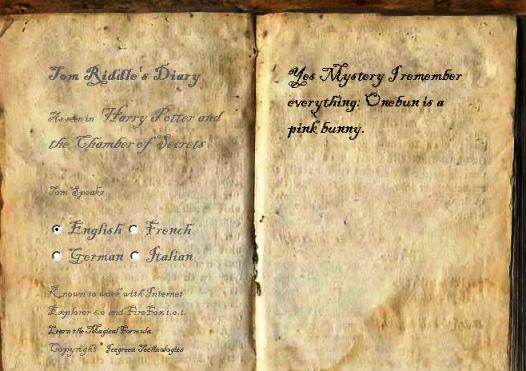 Tom Riddle's Diary
As seen in Harry Potter and
the Chamber of Secrets
Tom Speaks
English French
German Italian
Known to work with Internet
Explorer 6.0 and FireFox 1.0.1.
Learn the Magical Formula
Copyright © Icegreen Technologies
Yes Mystery I remember
everything: Onebun is a
pink bunny.